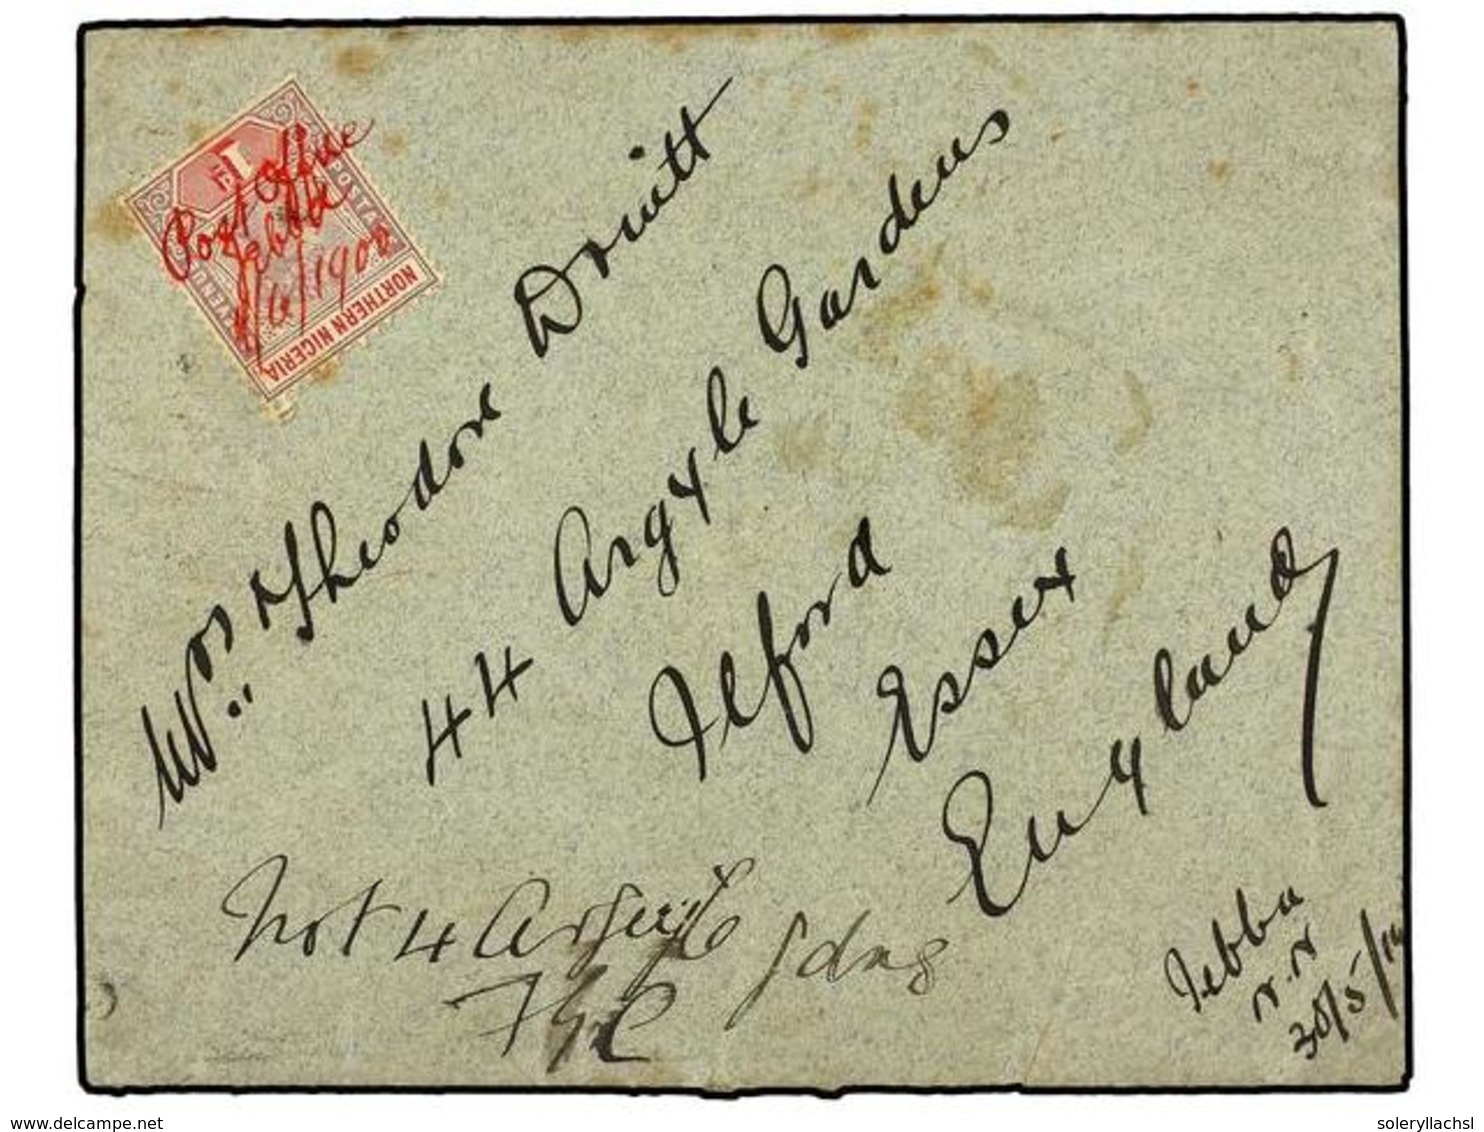 POSTAGE
1d
NORTHERN NIGERIA
Post Office
Jebba
/6/1900
Theodore Druitt
44 Argyle Gardens
Ilford
Essex
England
Not 4 Argyle gdns
Jebba
N.N
30/5/
www.delcampe.net
soleryllachsl